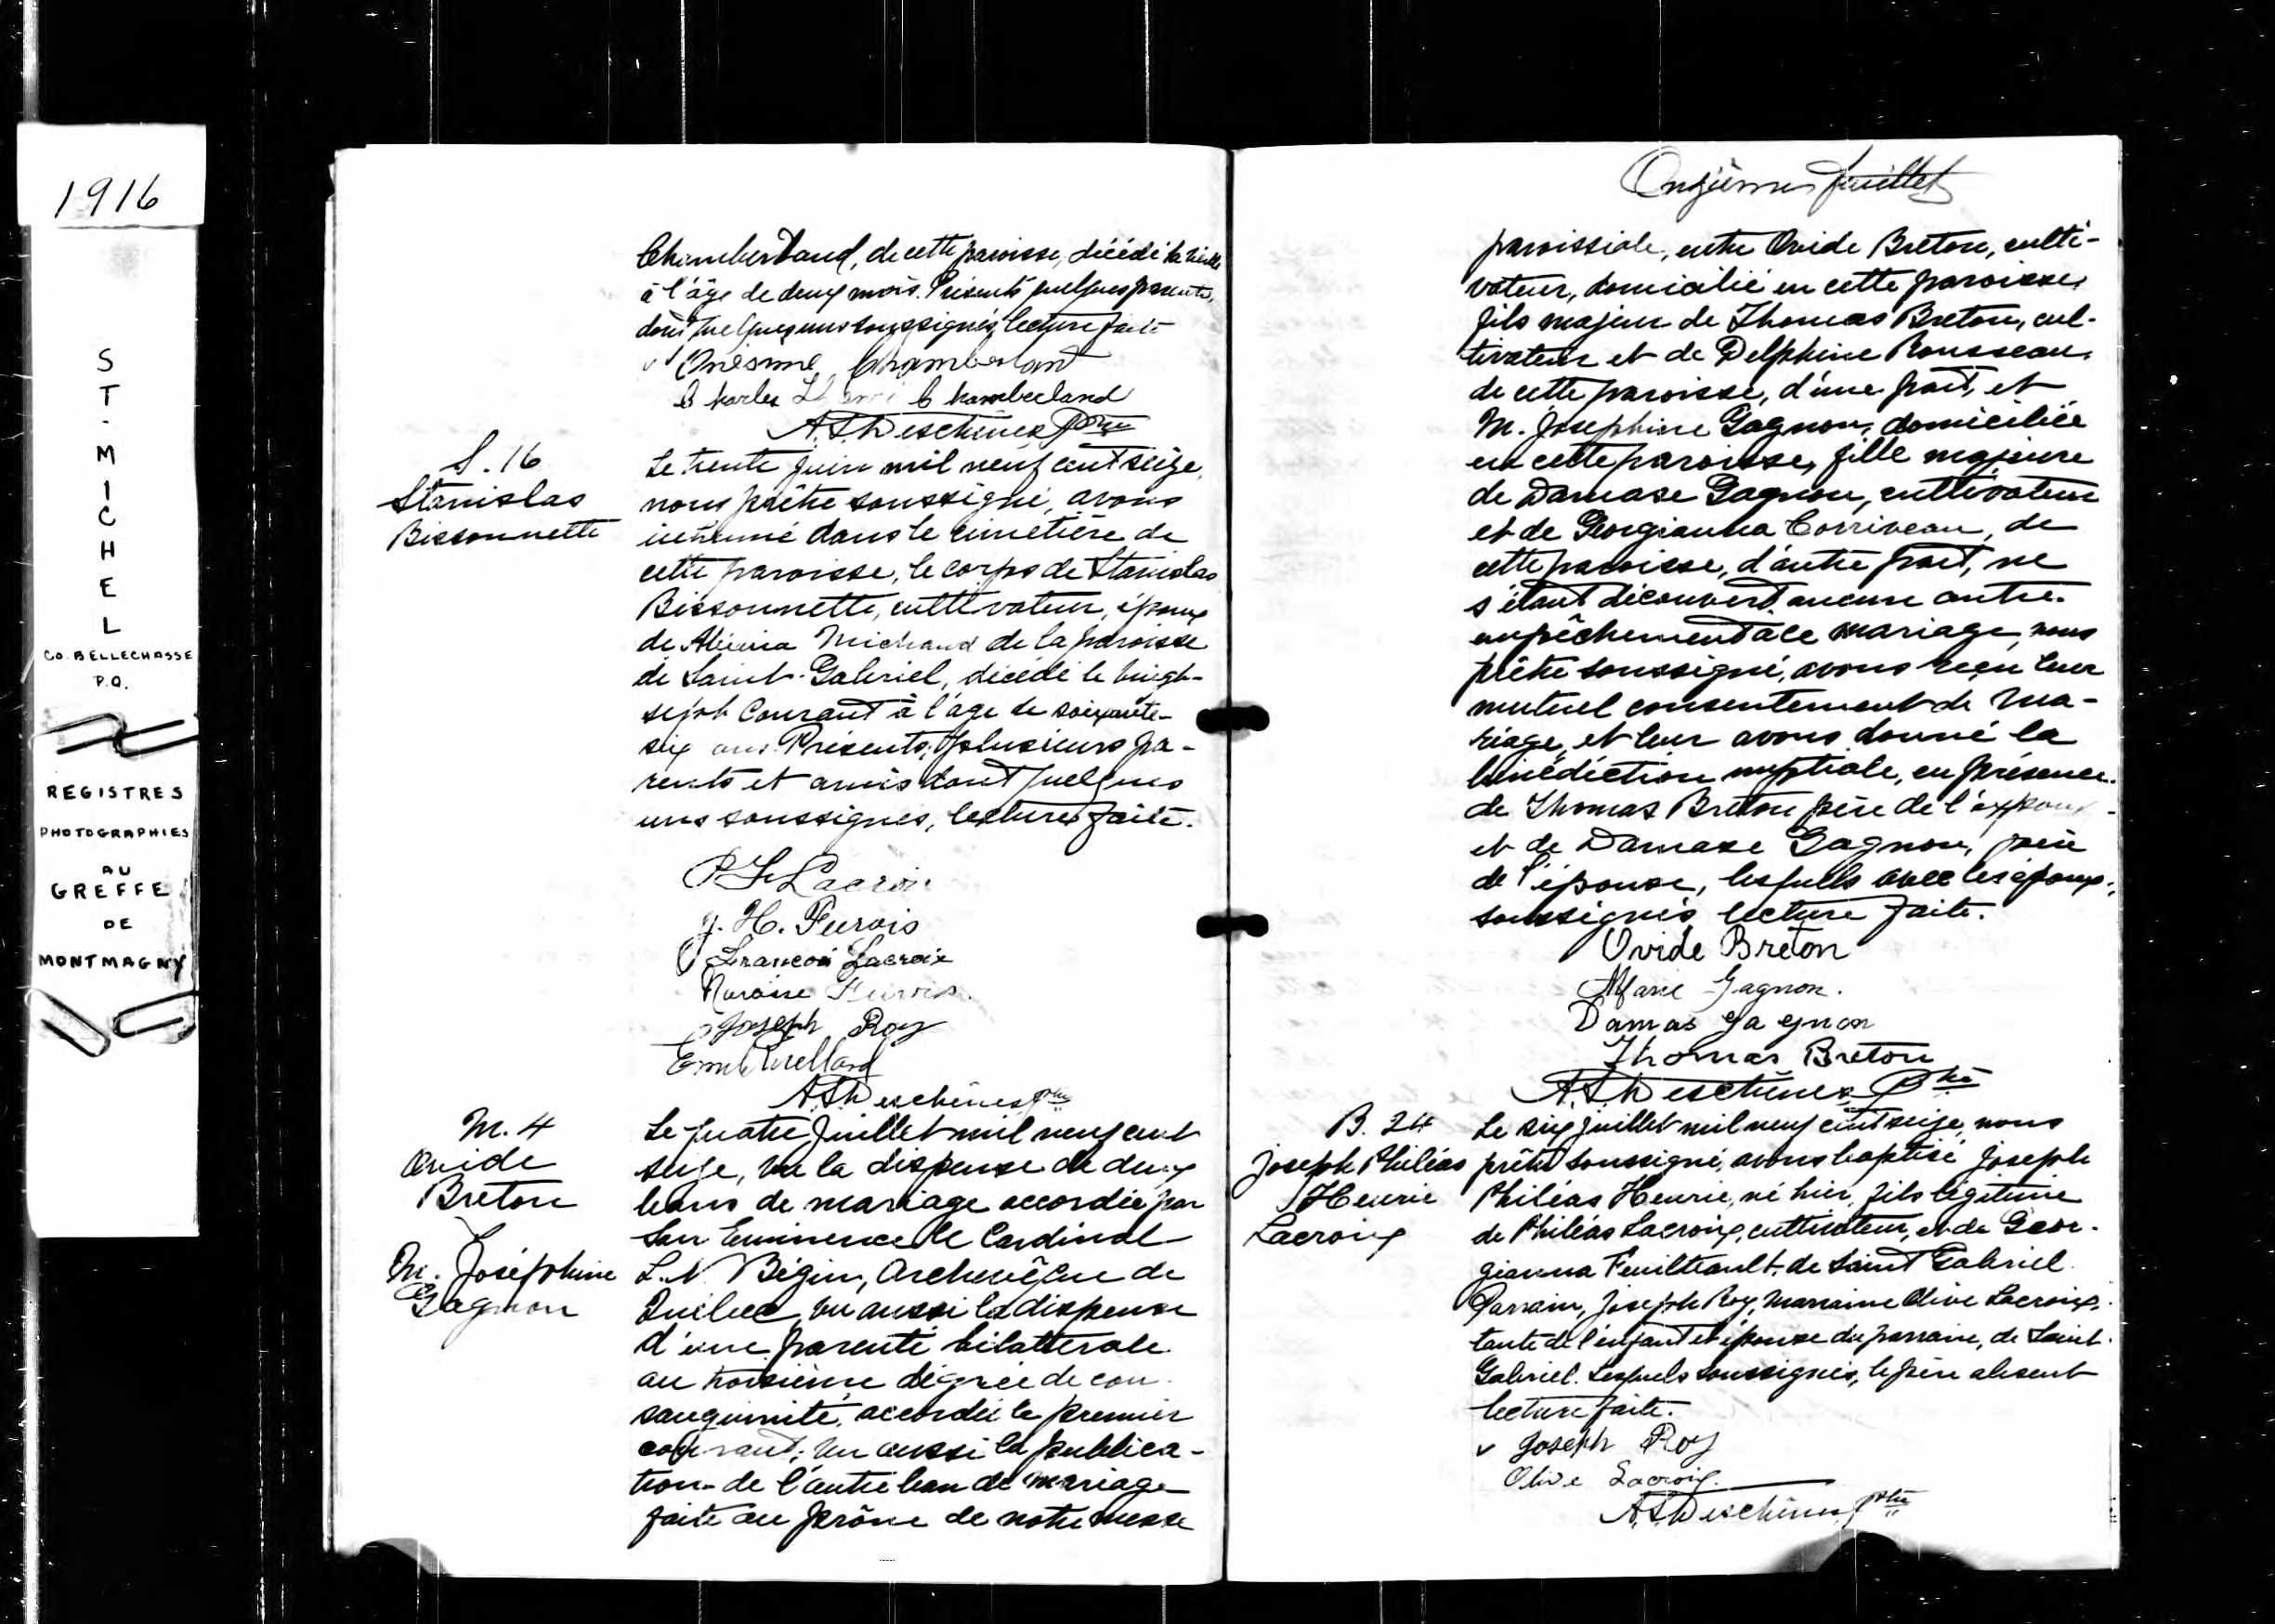 1916
ST. MICHEL
CO. BELLECHASSE
P.Q.
REGISTRES
PHOTOGRAPHIES
AU
GREFFE
DE
MONTMAGNY
Chamberland, de cette paroisse, décédé la veille
à l'âge de deux mois. Présents quelques parents,
dont quelques uns soussignés, lecture faite
Onésime Chamberland
Charles Chamberland
A.S. Deschênes Ptre
S. 16
Stanislas
Bissonnette
Le trente juin mil neuf cent seize,
nous prêtre soussigné, avons
inhumé dans le cimetière de
cette paroisse, le corps de Stanislas
Bissonnette, cultivateur, époux
de Michaud de la paroisse
de Saint-Gabriel, décédé le vingt-
sept courant à l'âge de soixante-
six ans. Présents, plusieurs pa-
rents et amis dont quelques
uns soussignés, lecture faite.
P. Lacroix
J. H. Furois
François Lacroix
Furois.
Joseph Roy
A.S. Deschênes ptre
M. 4
Ovide
Breton
M. Joséphine
Gagnon
Le quatre Juillet mil neuf cent
seize, vu la dispense de deux
bans de mariage accordée par
Son Eminence le Cardinal
L. N. Bégin, Archevêque de
Québec, vu aussi la dispense
d'une parenté bilattérale
au troisième dégrée de con-
sanguinité, accordée le premier
courant; vu aussi la publica-
tion de l'autre ban de mariage
faite au prône de notre messe
Onzième feuillet
paroissiale, entre Ovide Breton, culti-
vateur, domicilié en cette paroisse,
fils majeur de Thomas Breton, cul-
tivateur et de Delphine Rousseau,
de cette paroisse, d'une part, et
M. Joséphine Gagnon, domiciliée
en cette paroisse, fille majeure
de Damase Gagnon, cultivateur
et de Georgianna Corriveau, de
cette paroisse, d'autre part, ne
s'étant découvert aucun autre
empêchement à ce mariage, nous
prêtre soussigné, avons reçu leur
mutuel consentement de ma-
riage, et leur avons donné la
bénédiction nuptiale, en présence
de Thomas Breton père de l'époux
et de Damase Gagnon, père
de l'épouse, lesquels avec les époux,
soussignés lecture faite.
Ovide Breton
Marie Gagnon.
Damas Gagnon
Thomas Breton
A.S. Deschênes Ptre
B. 24
Joseph Philéas
Henrie
Lacroix
Le six juillet mil neuf cent seize, nous
prêtre soussigné, avons baptisé Joseph
Philéas Henrie, né hier, fils légitime
de Philéas Lacroix, cultivateur, et de Geor-
gianna Feuilteault, de Saint Gabriel.
Parrain, Joseph Roy, marraine Olive Lacroix,
tante de l'enfant et épouse du parrain, de Saint
Gabriel. Lesquels soussignés, le père absent
lecture faite.
Joseph Roy
Olive Lacroix
A.S. Deschênes, ptre